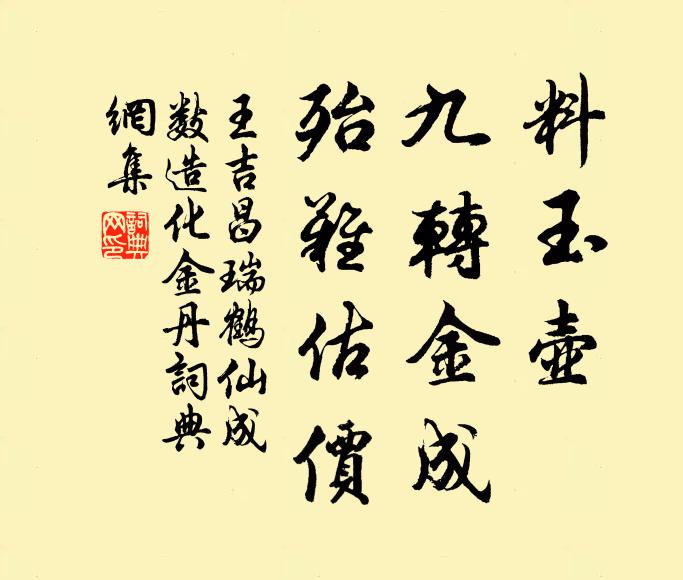 料玉壺
九轉金成
殆難估價
王吉昌瑞鶴仙成
數造化金丹詞典
網集
詞典網印